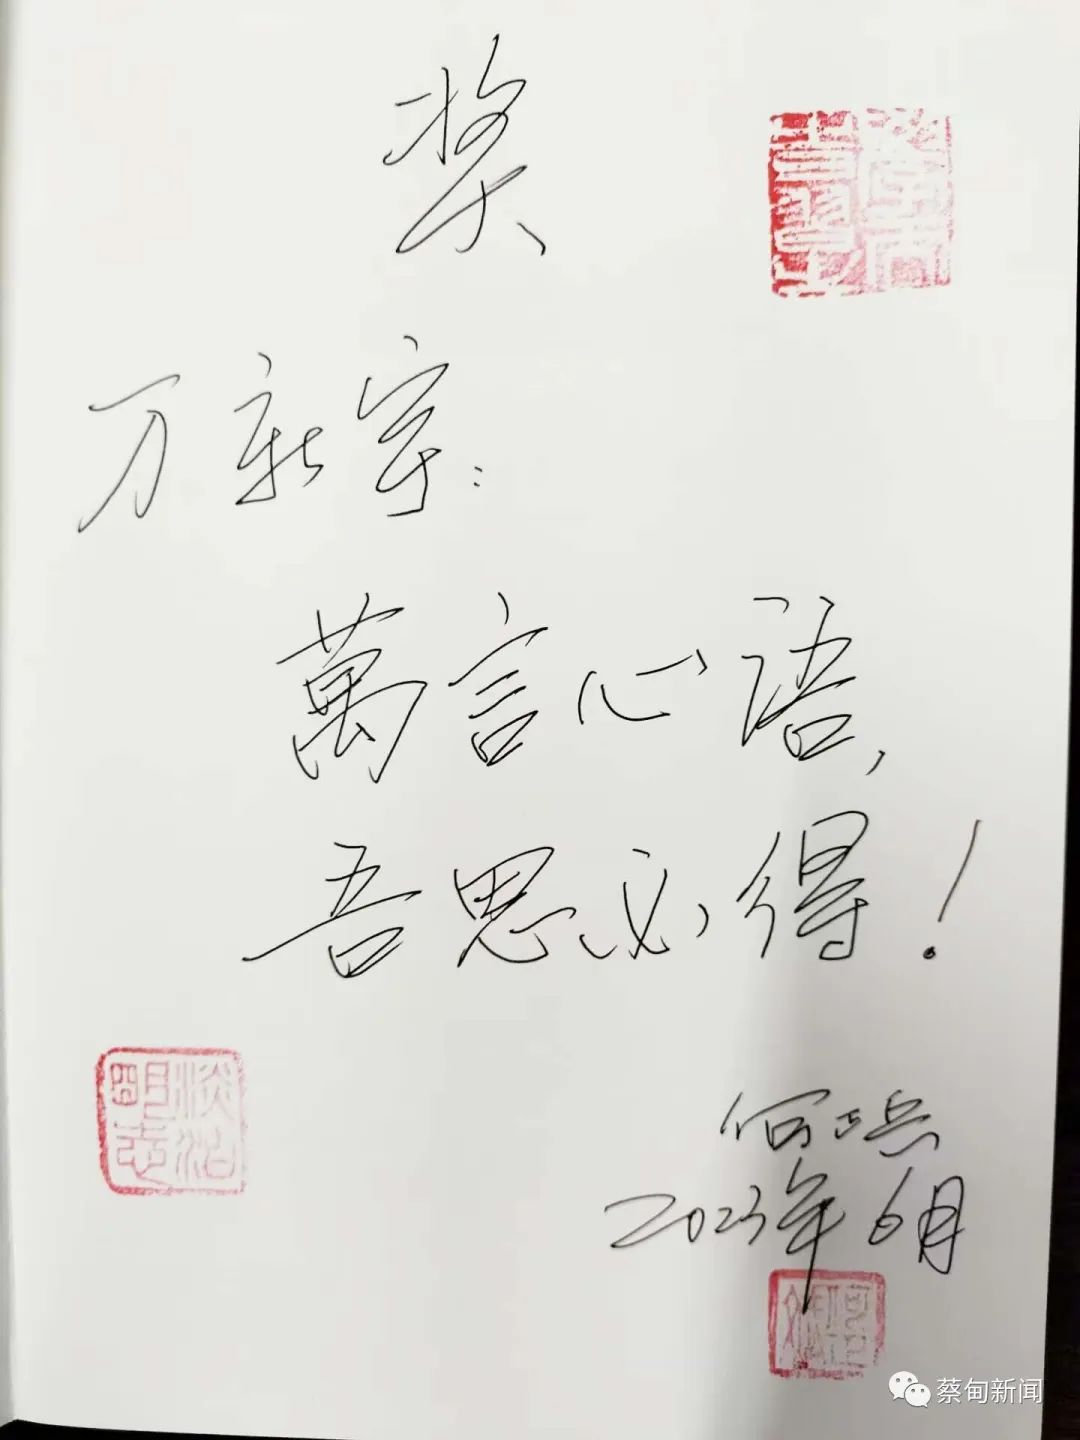 奖
万新宇：
萬言心语，
吾思必得！
何
2023年6月
淡泊
明志
蔡甸新闻